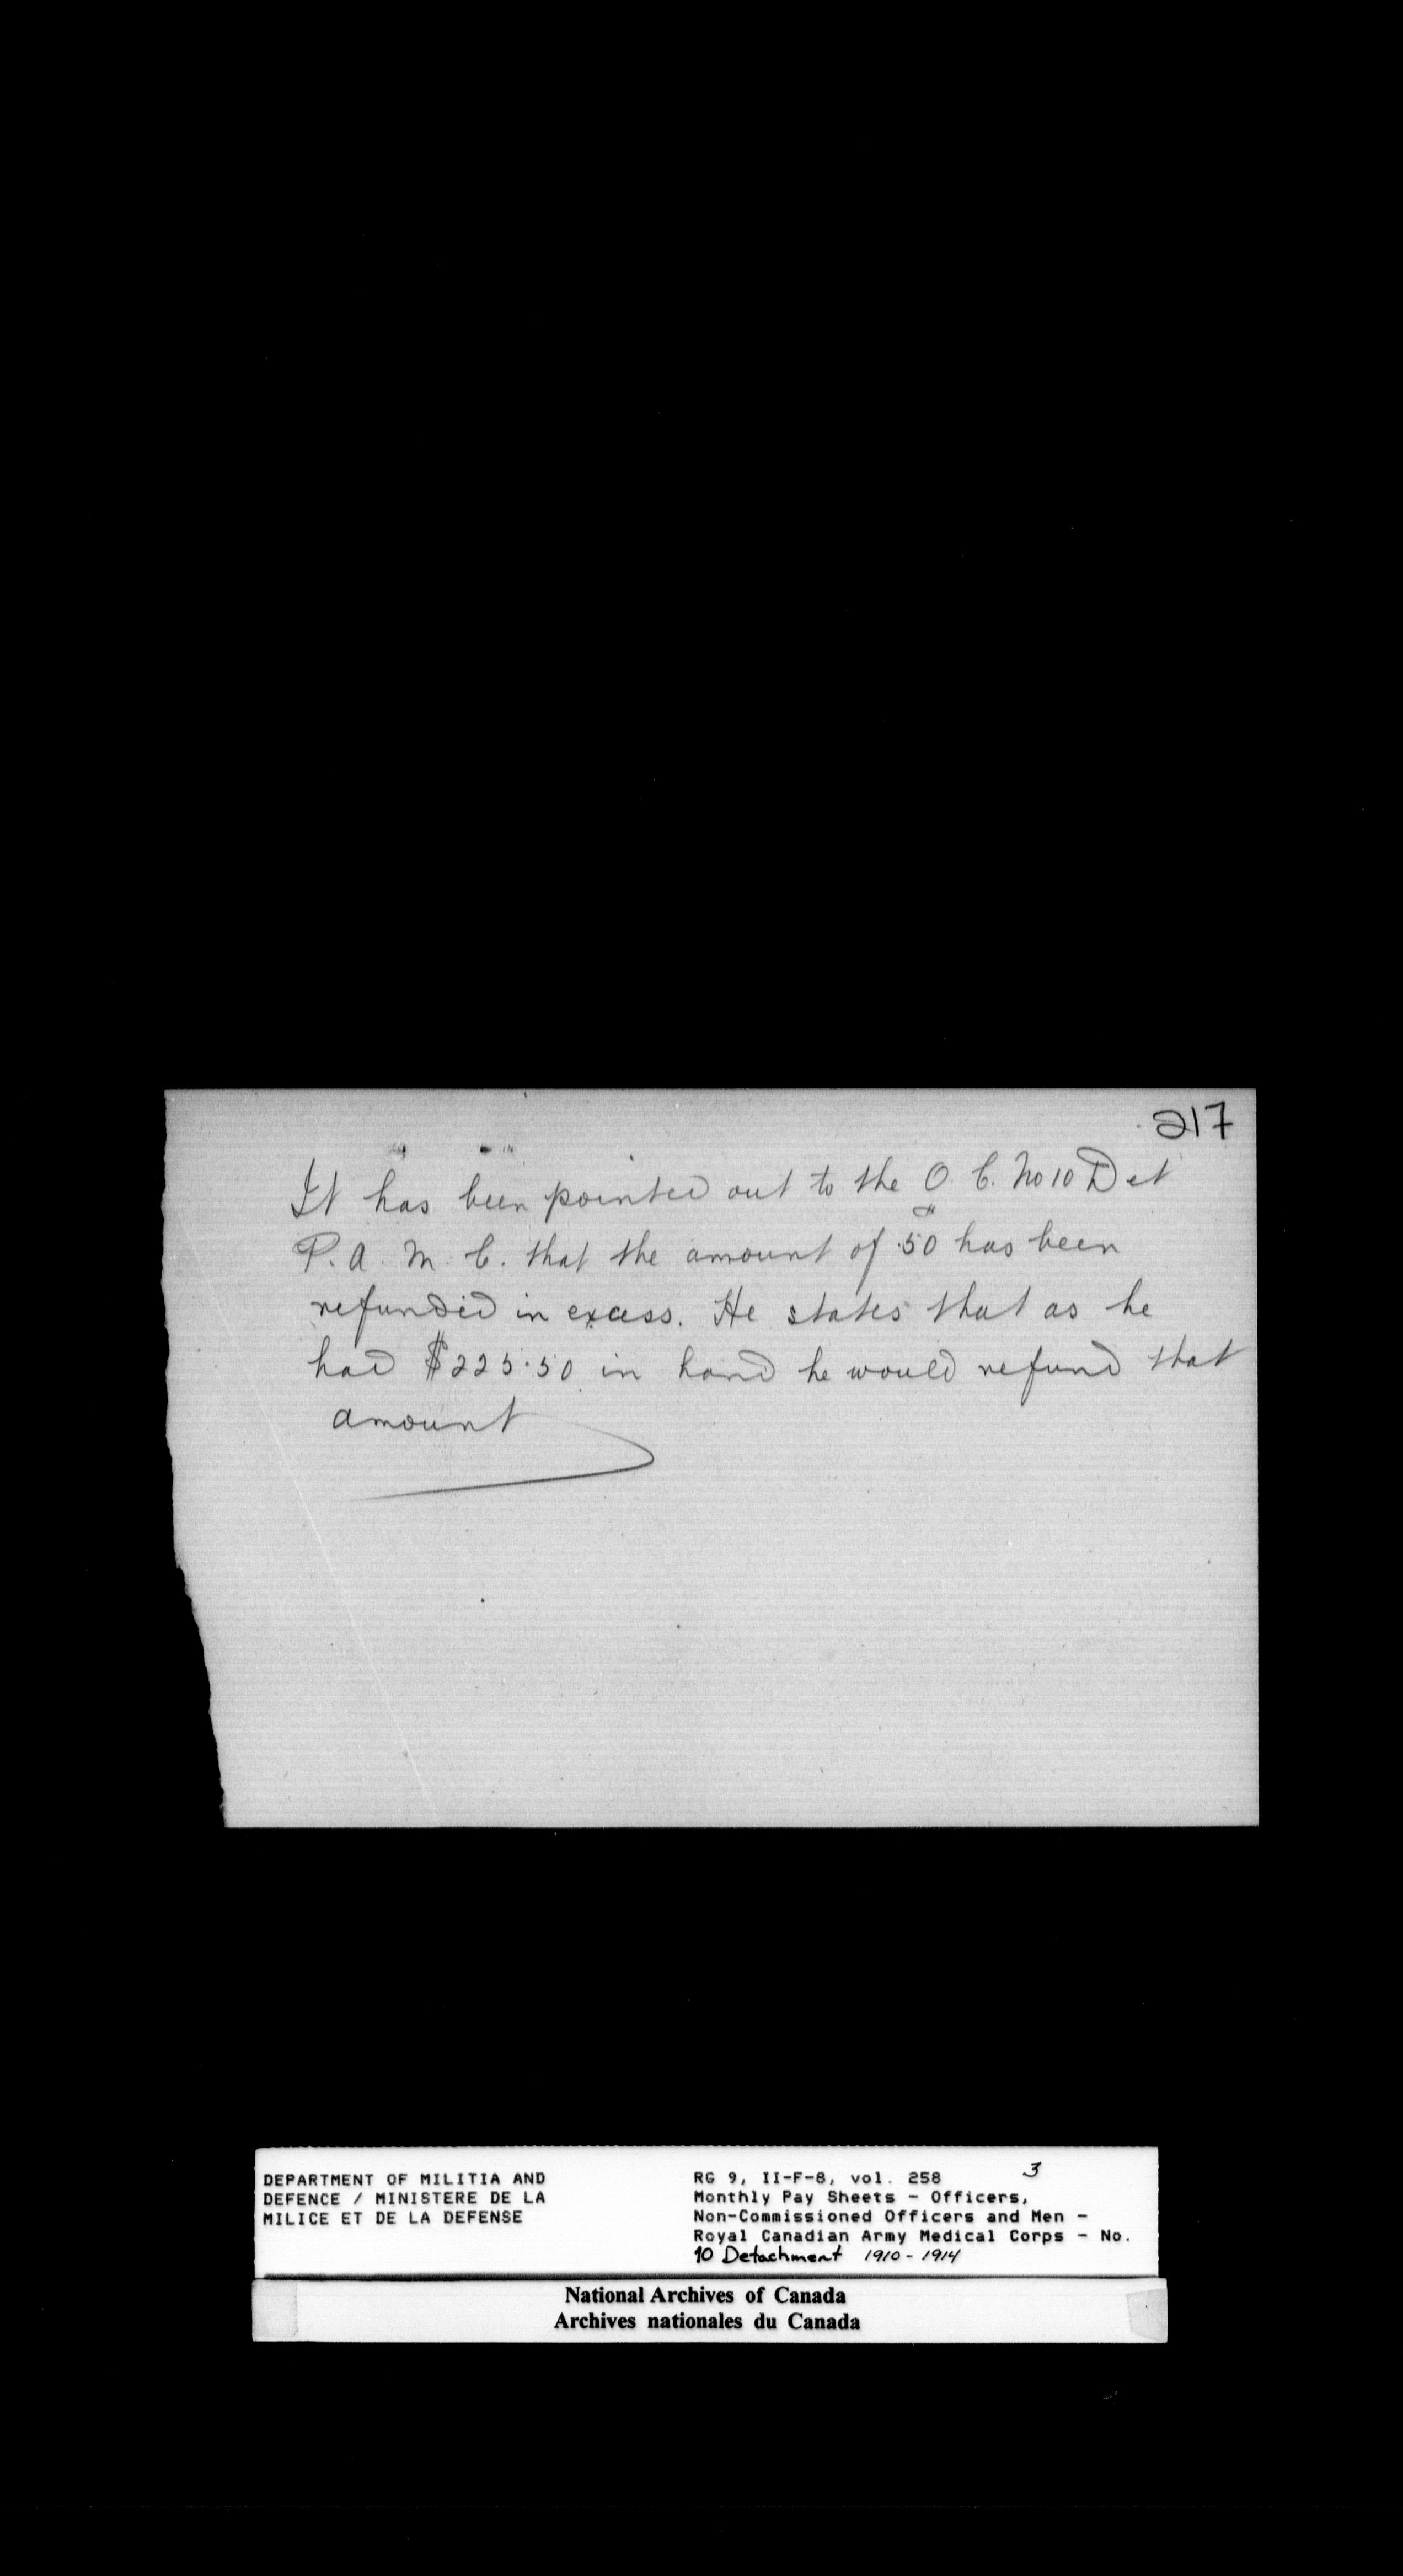 217
It has been pointed out to the O. C. No 10 Det
P. A. M. C. that the amount of .50 has been
refunded in excess. He states that as he
had $225.50 in hand he would refund that
amount
DEPARTMENT OF MILITIA AND
DEFENCE / MINISTERE DE LA
MILICE ET DE LA DEFENSE
RG 9, II-F-8, vol. 258 3
Monthly Pay Sheets - Officers,
Non-Commissioned Officers and Men -
Royal Canadian Army Medical Corps - No.
10 Detachment 1910-1914
National Archives of Canada
Archives nationales du Canada